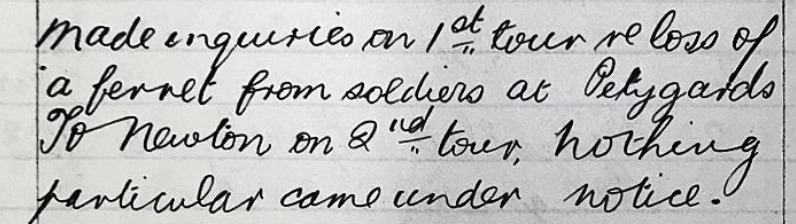 made inquiries on 1st tour re loss of
a ferret from soldiers at Petygards
To Newton on 2nd tour, nothing
particular came under notice.